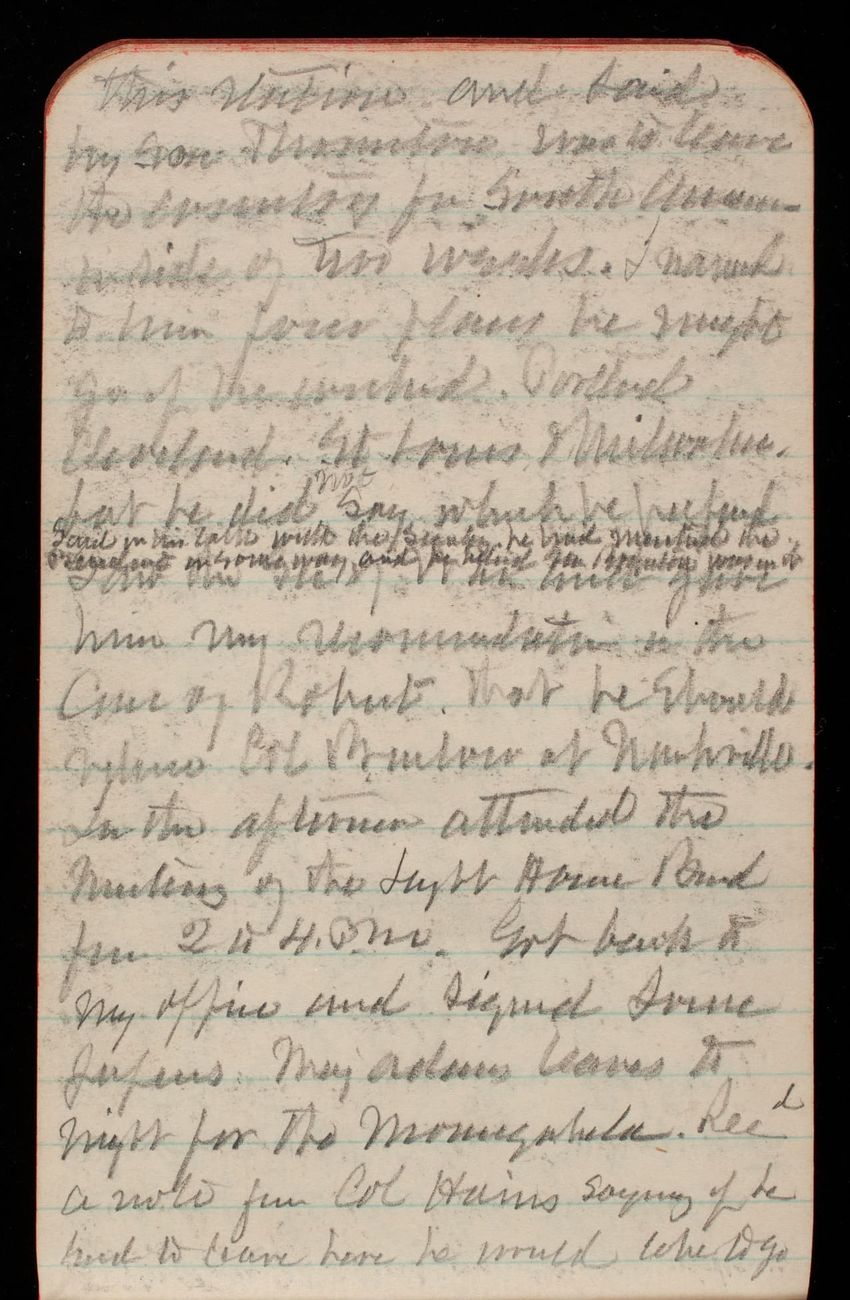 this station and said
my son Thornton was to leave
the country for South Amer
inside of two weeks. I named
to him four places he might
go if he wished. Portland
Cleveland. St Louis & Milwaukee.
but he did not say which he prefered
Said in his talk with the Secretary he had mentioned the
President in some way and he asked Gen Thornton was in it
Saw the Secy and gave
him my recommendation in the
Case of Robert. that he should
relieve Col Barlow at Nashville.
In the afternoon attended the
Meeting of the Light House Board
from 2 to 4. P.M. Got back to
my office and signed some
papers. Maj Adams leaves to
night for the Monongahela. Recd
a note from Col Hains saying if he
had to leave here he would like to go